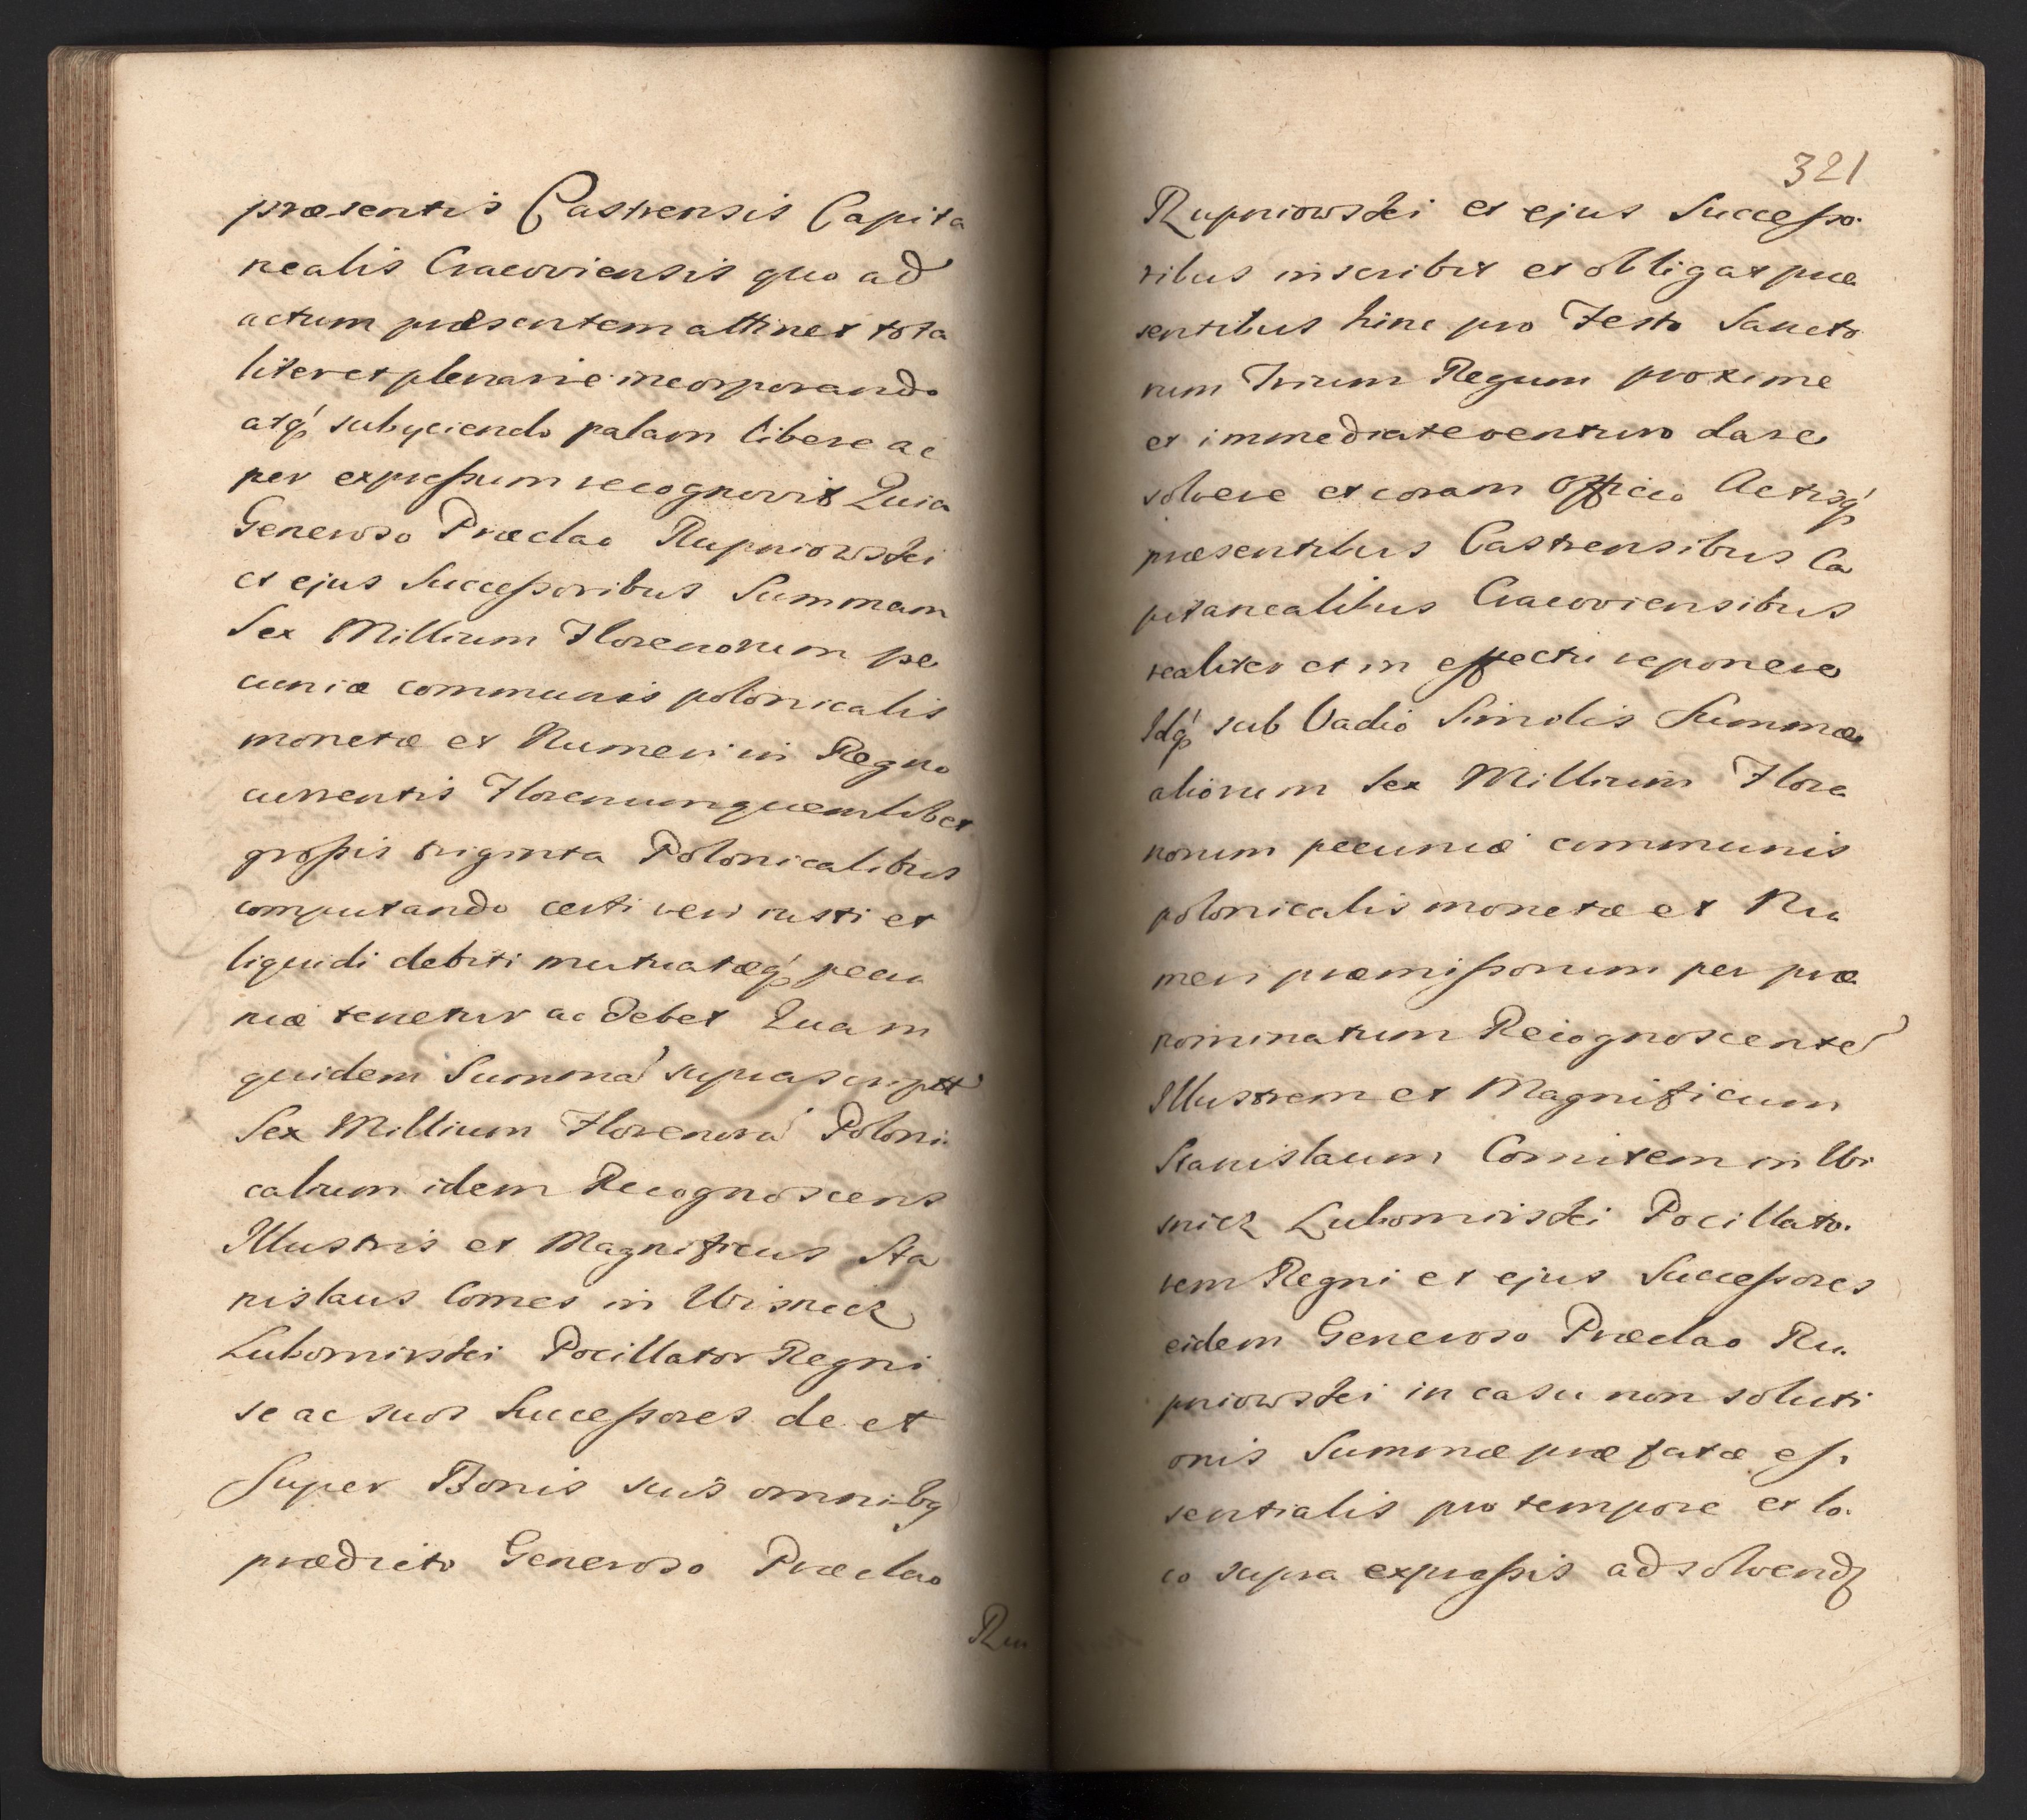 præsentis Castrensis Capita
nealis Cracoviensis quo ad
actum præsentem attinet tota
liter et plenarie incorporando
atq́ subyciendo palam libere ac
per expressum recognovit Quia
Generoso Præclao Rupniowski
et ejus Successoribus Summam
Sex Millium Florenorum pe
cuniæ communis polonicalis
monetæ et Numeri in Regno
currentis Florenumquemlibet
grossis triginta Polonicalibus
computando certi veri iusti et
liquidi debiti mutuatæq́ pecu
niæ tenetur ac debet Quam
quidem Summã suprascriptã
Sex Millium Florenorũ Poloni
calium idem Recognoscens
Illustris et Magnificus Sta
nislaus Comes in Wisnicz
Lubomirski Pocillator Regni
se ac suos Successores de et
super Bonis suis omnibq
prædicto Generoso Præclao
Ru
321
Rupniowski et ejus Successo
ribus inscribit et obligat præ
sentibus hinc pro Festo Sancto
rum Trium Regum proxime
et immediate venturo dare
solvere et coram Officio Actisq́
præsentibus Castrensibus Ca
pitanealibus Cracoviensibus
realiter et in effectu reponere
Idq́ sub Vadio Similis Summæ
aliorum Sex Millium Flore
norum pecuniæ communis
polonicalis monetæ et Nu
meri præmissorum per præ
nominatum Recognoscentẽ
Illustrem et Magnificum
Stanislaum Comitem in Wi
snicz Lubomirski Pocillato
rem Regni et ejus Successores
eidem Generoso Præclao Ru
pniowski in casu non soluti
onis Summæ præfatæ es
sentialis pro tempore et lo
co supra expressis ad solvend